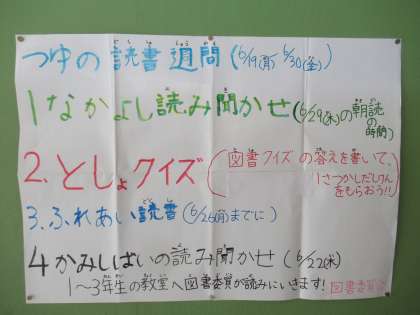 つゆの読書週間(6/19(月)6/30(金))
1なかよし読み聞かせ(6/29(木)の朝読の時間)
2.としょクイズ(図書クイズの答えを書いて、1さつかしだしけんをもらおう!!)
3.ふれあい読書(6/26(月)までに)
4かみしばいの読み聞かせ(6/22(木)
1〜3年生の教室へ図書委員が読みにいきます!
図書委員会